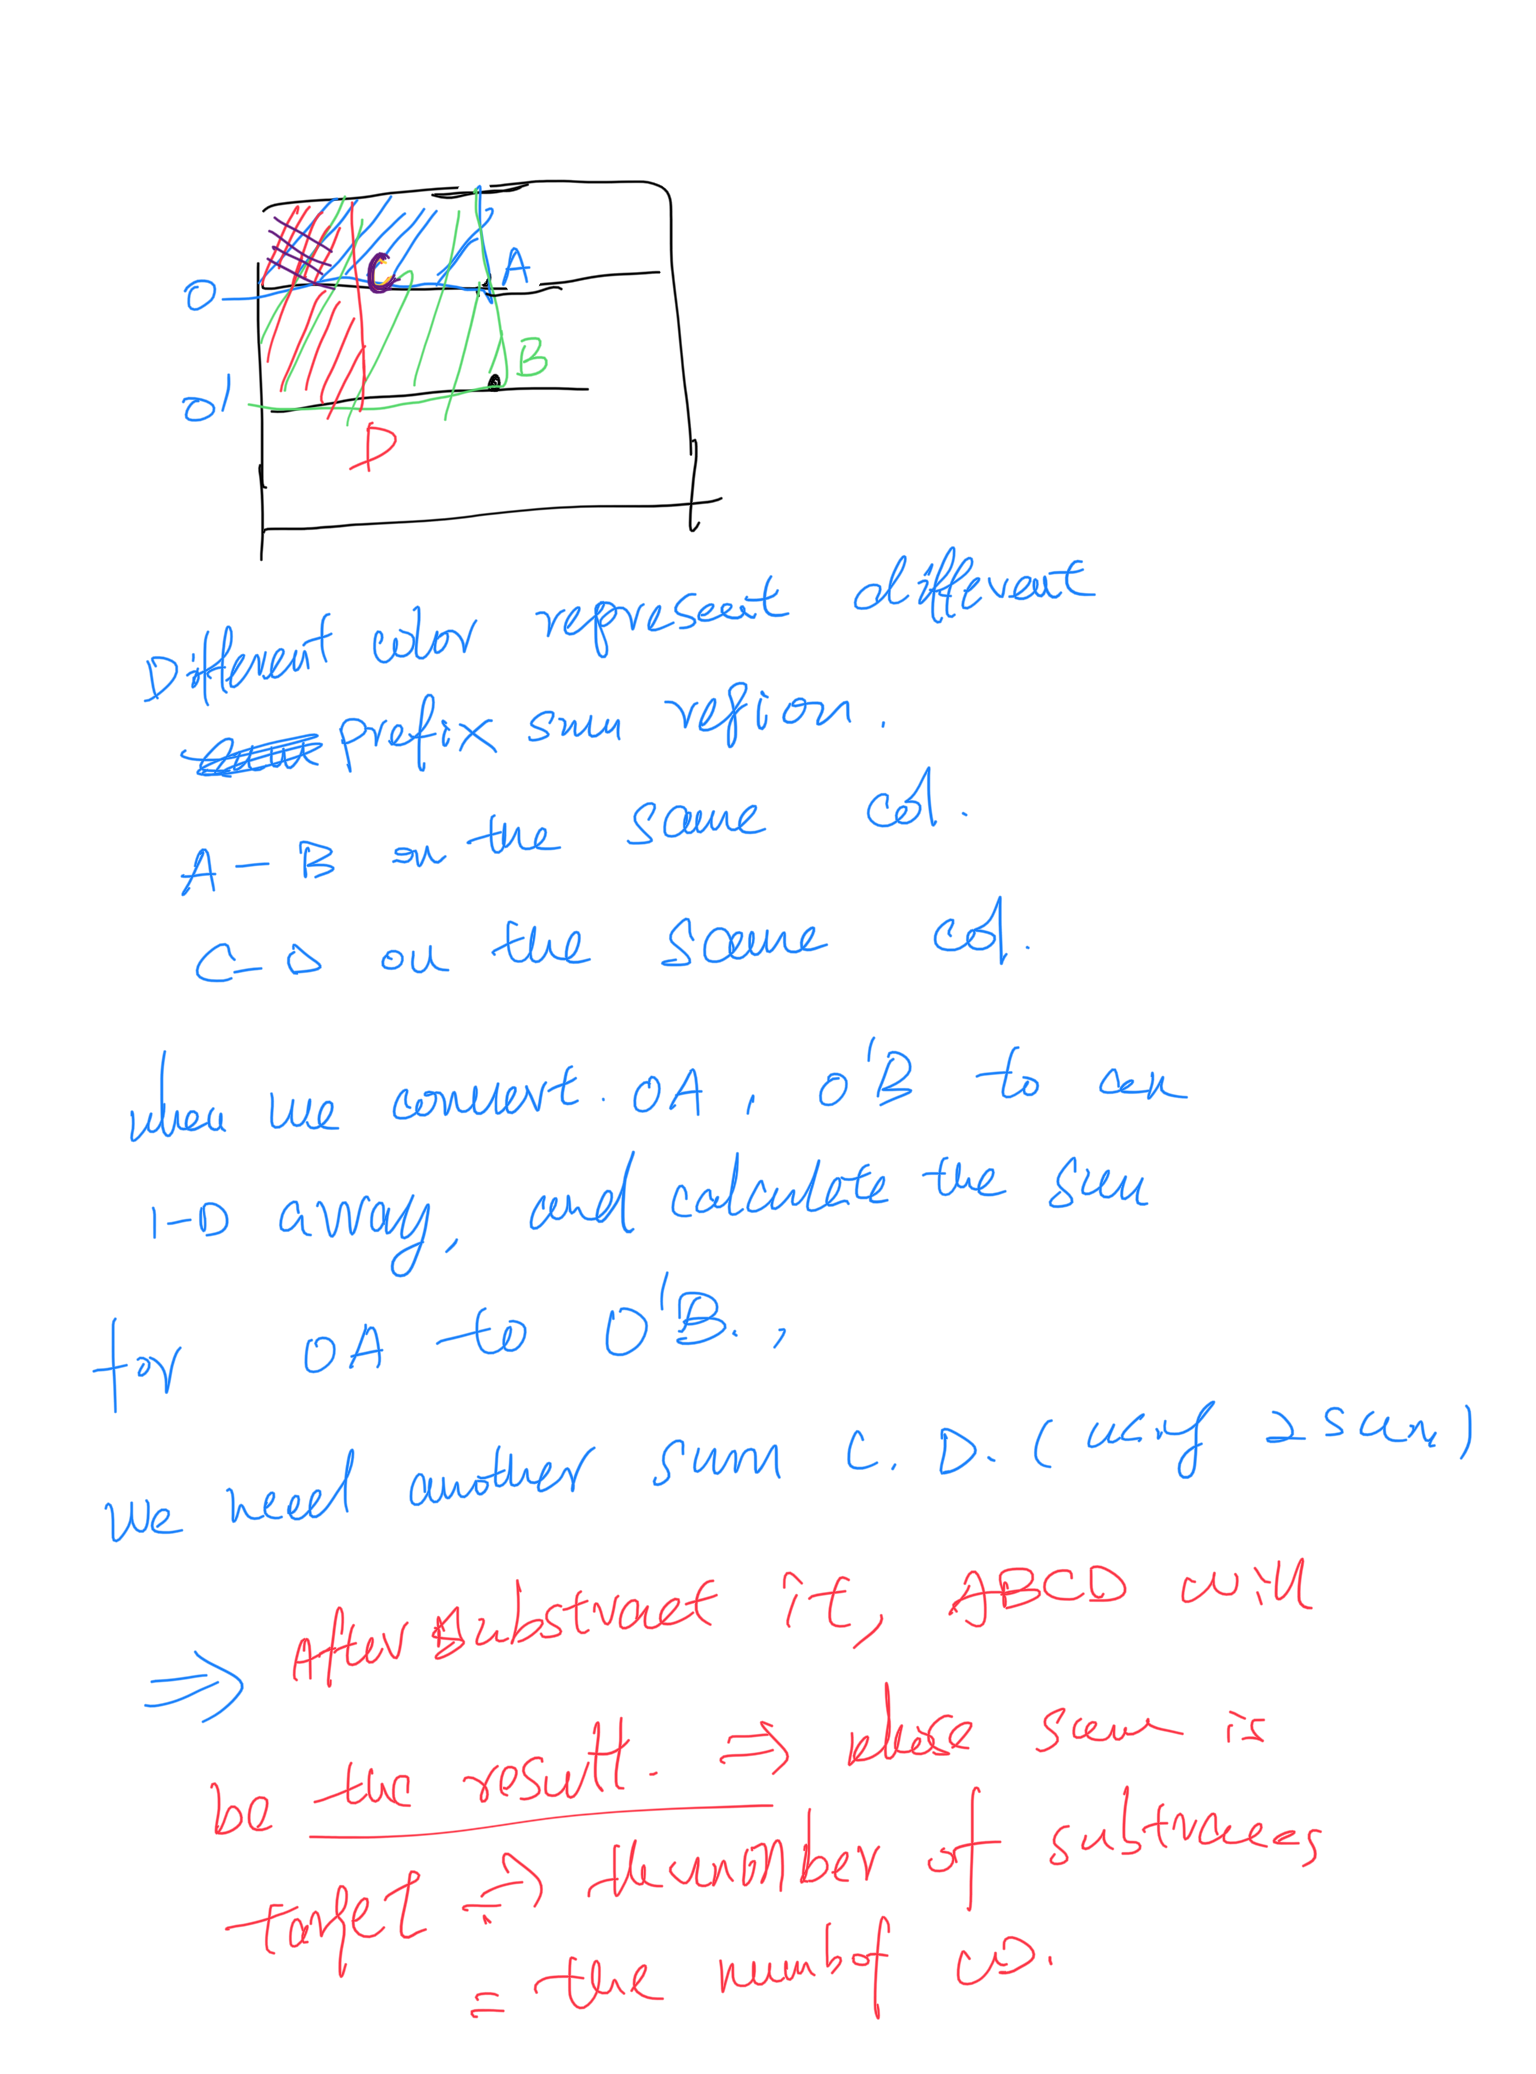 A
C
O
B
O'
D
Different color represent different
prefix sum region.
A - B on the same col.
C - D on the same col.
when we convert. OA, O'B to an
1-D array, and calculate the sum
for OA to O'B.,
we need another sum C, D. (using 2 sum)
⇒ After substract it, ABCD will
be the result. ⇒ whose sum is
target ⇒ the number of
= the numb of CD.